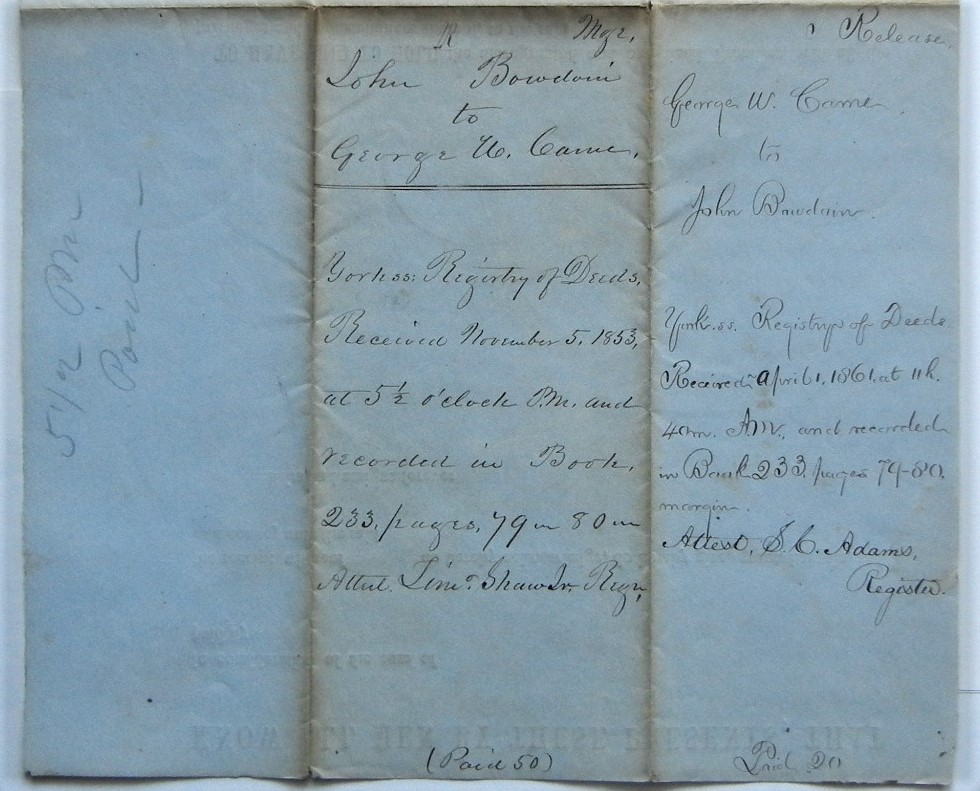 5 1/2 PM
Paid
R Mge,
John Bowdoin
to
George W. Came,
York ss: Registry of Deeds,
Received November 5, 1853,
at 5 1/2 o'clock P.M. and
recorded in Book,
233, pages, 79 80
Attest Timo. Shaw Jr. Regr,
(Paid 50)
Release,
George W. Came
to
John Bowdoin.
York.ss. Registry of Deeds.
Received, April 1, 1861, at 11h.
40m. A.M., and recorded
in Book 233, pages 79-80,
margin.
Attest, S. C. Adams,
Register.
Paid 20